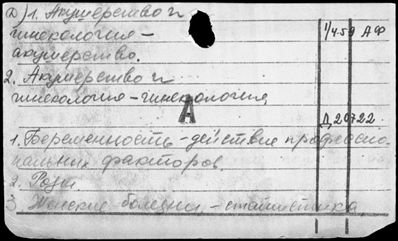 Д) 1. Акушерство и
гинекология —
акушерство.
1/459 АФ
2. Акушерство и
гинекология — гинекология
А
Д 20722
1. Беременность - действие профессио-
нальных факторов.
2. Роды
3 Женские болезни, - статистика.